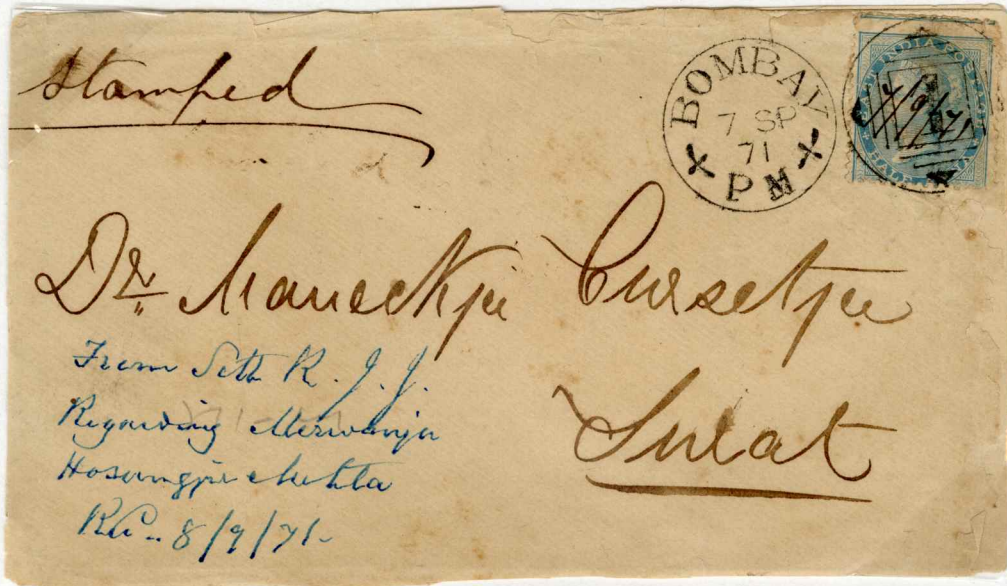 Stamped
BOMBAY
7 SP
71
PM
7/9/71
Dr Maneckjee Cursetjee
Surat
From Seth R. J. J.
Regarding Merwanjee
Hosungjee Mehta
Rec. 8/9/71